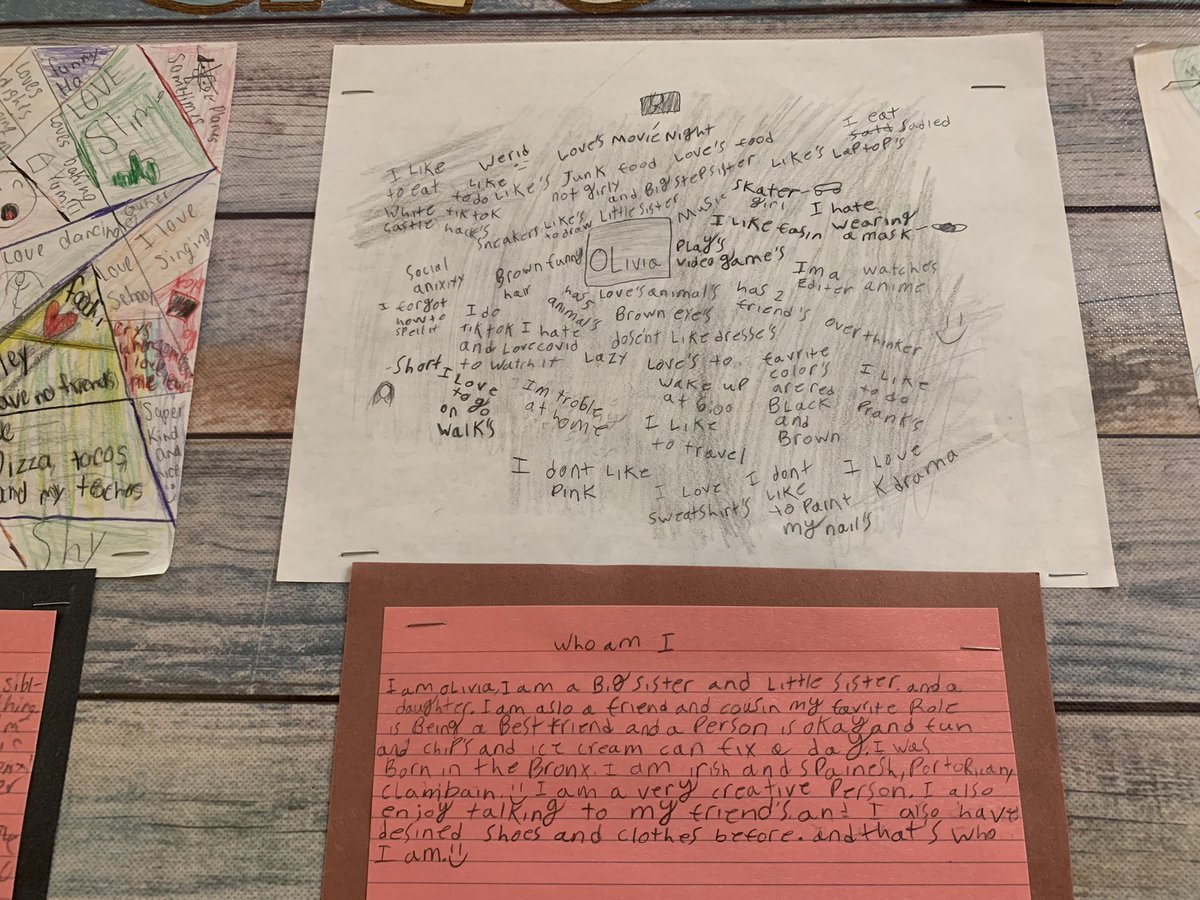 Loves
funny
Ha
LOVE
Slime
Loves baking
Love dancing
I love
Singing
Love
School
food,
have no friends
Pizza, tacos,
and my teches
Super
Kind
and
nice
Shy
Love's Movie Night
I Like
to eat
White
Castle
Werid
Like
to do
tiktok
hack's
Like's Junk food
Love's food
I eat
Sadied
not girly
and Big stepsister
Like's Laptop's
Sneakers
Like's
to draw
Little Sister
Music
Skater
girl
I hate
wearing
a mask
I Like Easin
OLivia
Play's
video game's
Social
anixity
I forgot
how to
spell it
Brown funny
hair
has
5
animal's
Love's animal's
has 2
friend's
I'm a
Editer
watches
anime
I do
TikTok
and Love
to watch it
I hate
covid
Brown eye's
dosent Like dresse's
over thinker
-Short
Lazy
Love's to
wake up
at 6:00
favrite
color's
are red
Black
and
Brown
I Like
to do
Prank's
I Love
to go
on
walk's
I'm troble
at home
I Like
to travel
I dont Like
Pink
I Love
sweatshirt's
I dont
Like
to Paint
my nail's
I Love
K drama
Who am I
I am OLivia, I am a Big Sister and Little Sister. and a
daughter. I am aslo a friend and cousin my favrite Role
is Being a Best friend and a Person is okay and fun
and chip's and ice cream can fix a day. I was
Born in the Bronx. I am irish and Spainesh, PortoRican,
clambain. I am a very creative Person. I also
enjoy talking to my friend's. and I also have
desined shoes and clothes before. and that's who
I am.